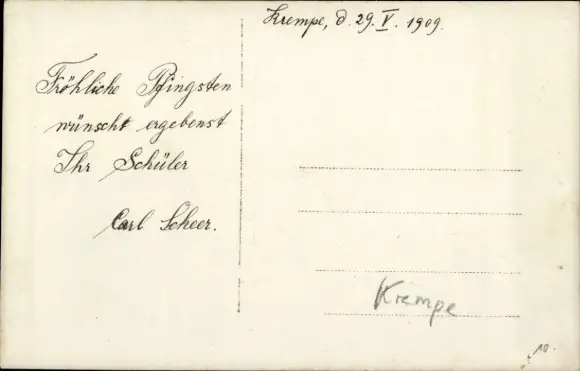 Krempe, d. 29. V. 1909.
Fröhliche Pfingsten
wünscht ergebenst
Ihr Schüler
Carl Scheer.
Krempe
10.